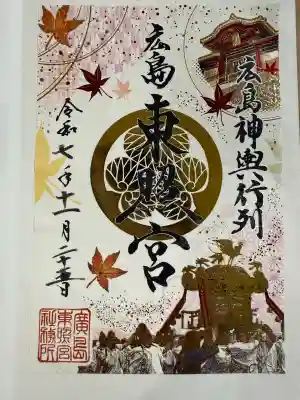 広島神輿行列
広島
東照宮
令和七年十一月二十三日
廣島
東照宮
社務所